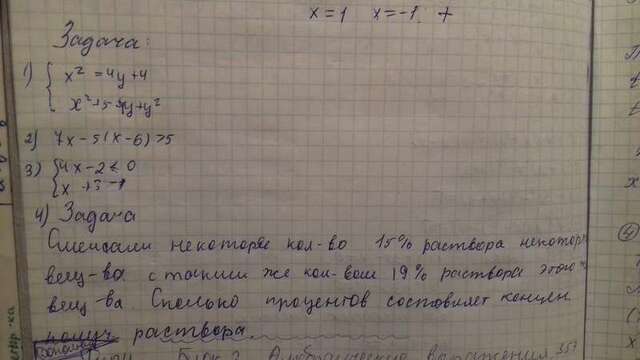 x = 1 x = -1. +
Задача:
1) { x² = 4y + 4
x² + 5 y + y²
2) 7x - 5(x - 6) > 5
3) { 4x - 2 ≤ 0
x + 3
4) Задача
Смешали некоторое кол-во 15% раствора некотор
вещ-ва с таким же кол-вом 19% раствора этого
вещ-ва. Сколько процентов составляет концен
получ раствора.
Блок 2 Алгебраические выражения 351